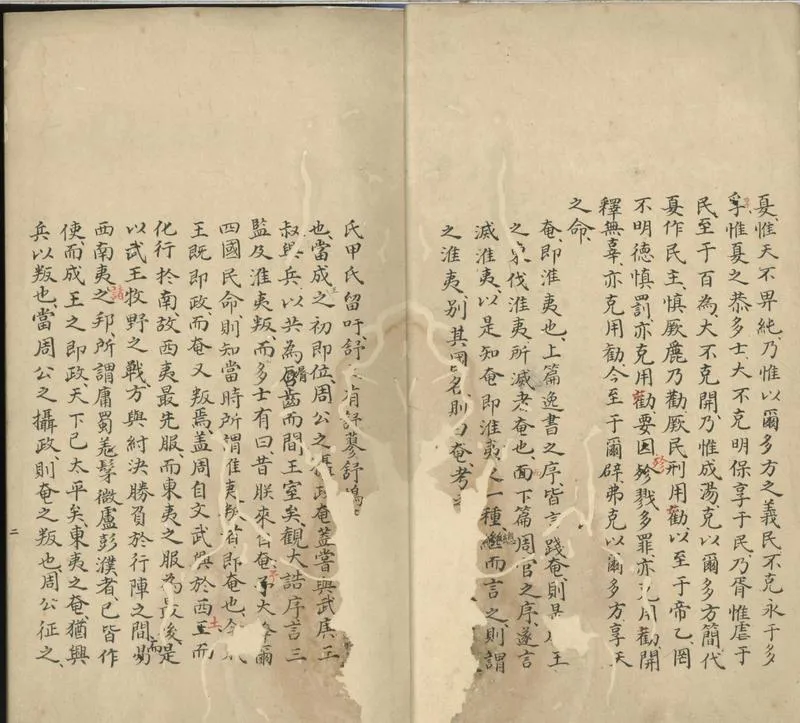 夏、惟天不畀純、乃惟以爾多方之義民不克永于多
享惟夏之恭多士、大不克明保享于民、乃胥惟虐于
民、至于百為、大不克開、乃惟成湯、克以爾多方簡代
夏作民主、慎厥麗乃勸、厥民刑用勸、以至于帝乙、罔
不明德慎罰亦克用勸、要囚殄戮多罪亦克用勸開
釋無辜、亦克用勸、今至于爾辟弗克以爾多方享天
之命、
奄、即淮夷也、上篇逸書之序、皆言踐奄、則王
之東伐淮夷所滅者奄也、而下篇周官之序、遂言
滅淮夷、以是知奄即淮夷之一種、總而言之、則謂
之淮夷、別其國名、則曰奄、考
氏甲氏留吁、舒有舒蓼舒鳩
也、當成王之初即位、周公之攝政奄蓋嘗與武庚三
叔與兵、以共為脣齒而間王室矣、觀大誥序言三
監及淮夷叛、而多士有曰、昔朕來自奄、予大降爾
四國民命、則知當時所謂淮夷叛者即奄也、今
王既即政、而奄又叛焉、蓋周自文武興於西土而
化行於南、故西夷最先服、而東夷之服為最後是
以武王牧野之戰、方與紂決勝負於行陣之間、而
西南夷之諸邦、所謂庸蜀羌髳微盧彭濮者、已皆作
使、而成王之即政、天下已太平矣、東夷之奄、猶興
兵以叛也、當周公之攝政、則奄之叛也、周公征之
二